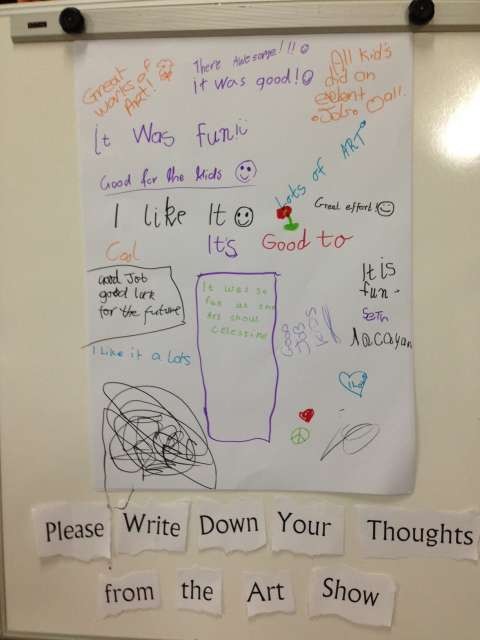 Great
works of
Art!
There Awesome!!!
it was good!
All Kid's
did an
exelent
Job Oall.
it Was Funii
Good for the kids
Lots of ART
I like It
Great effort!
Cool
It's Good to
Good Job
good luck
for the future
It was so
fun at the
Art show
celestine
It is
fun.
Seth
Good
Jobs
Kids
I Like it a lots
I like
Please Write Down Your Thoughts
from the Art Show